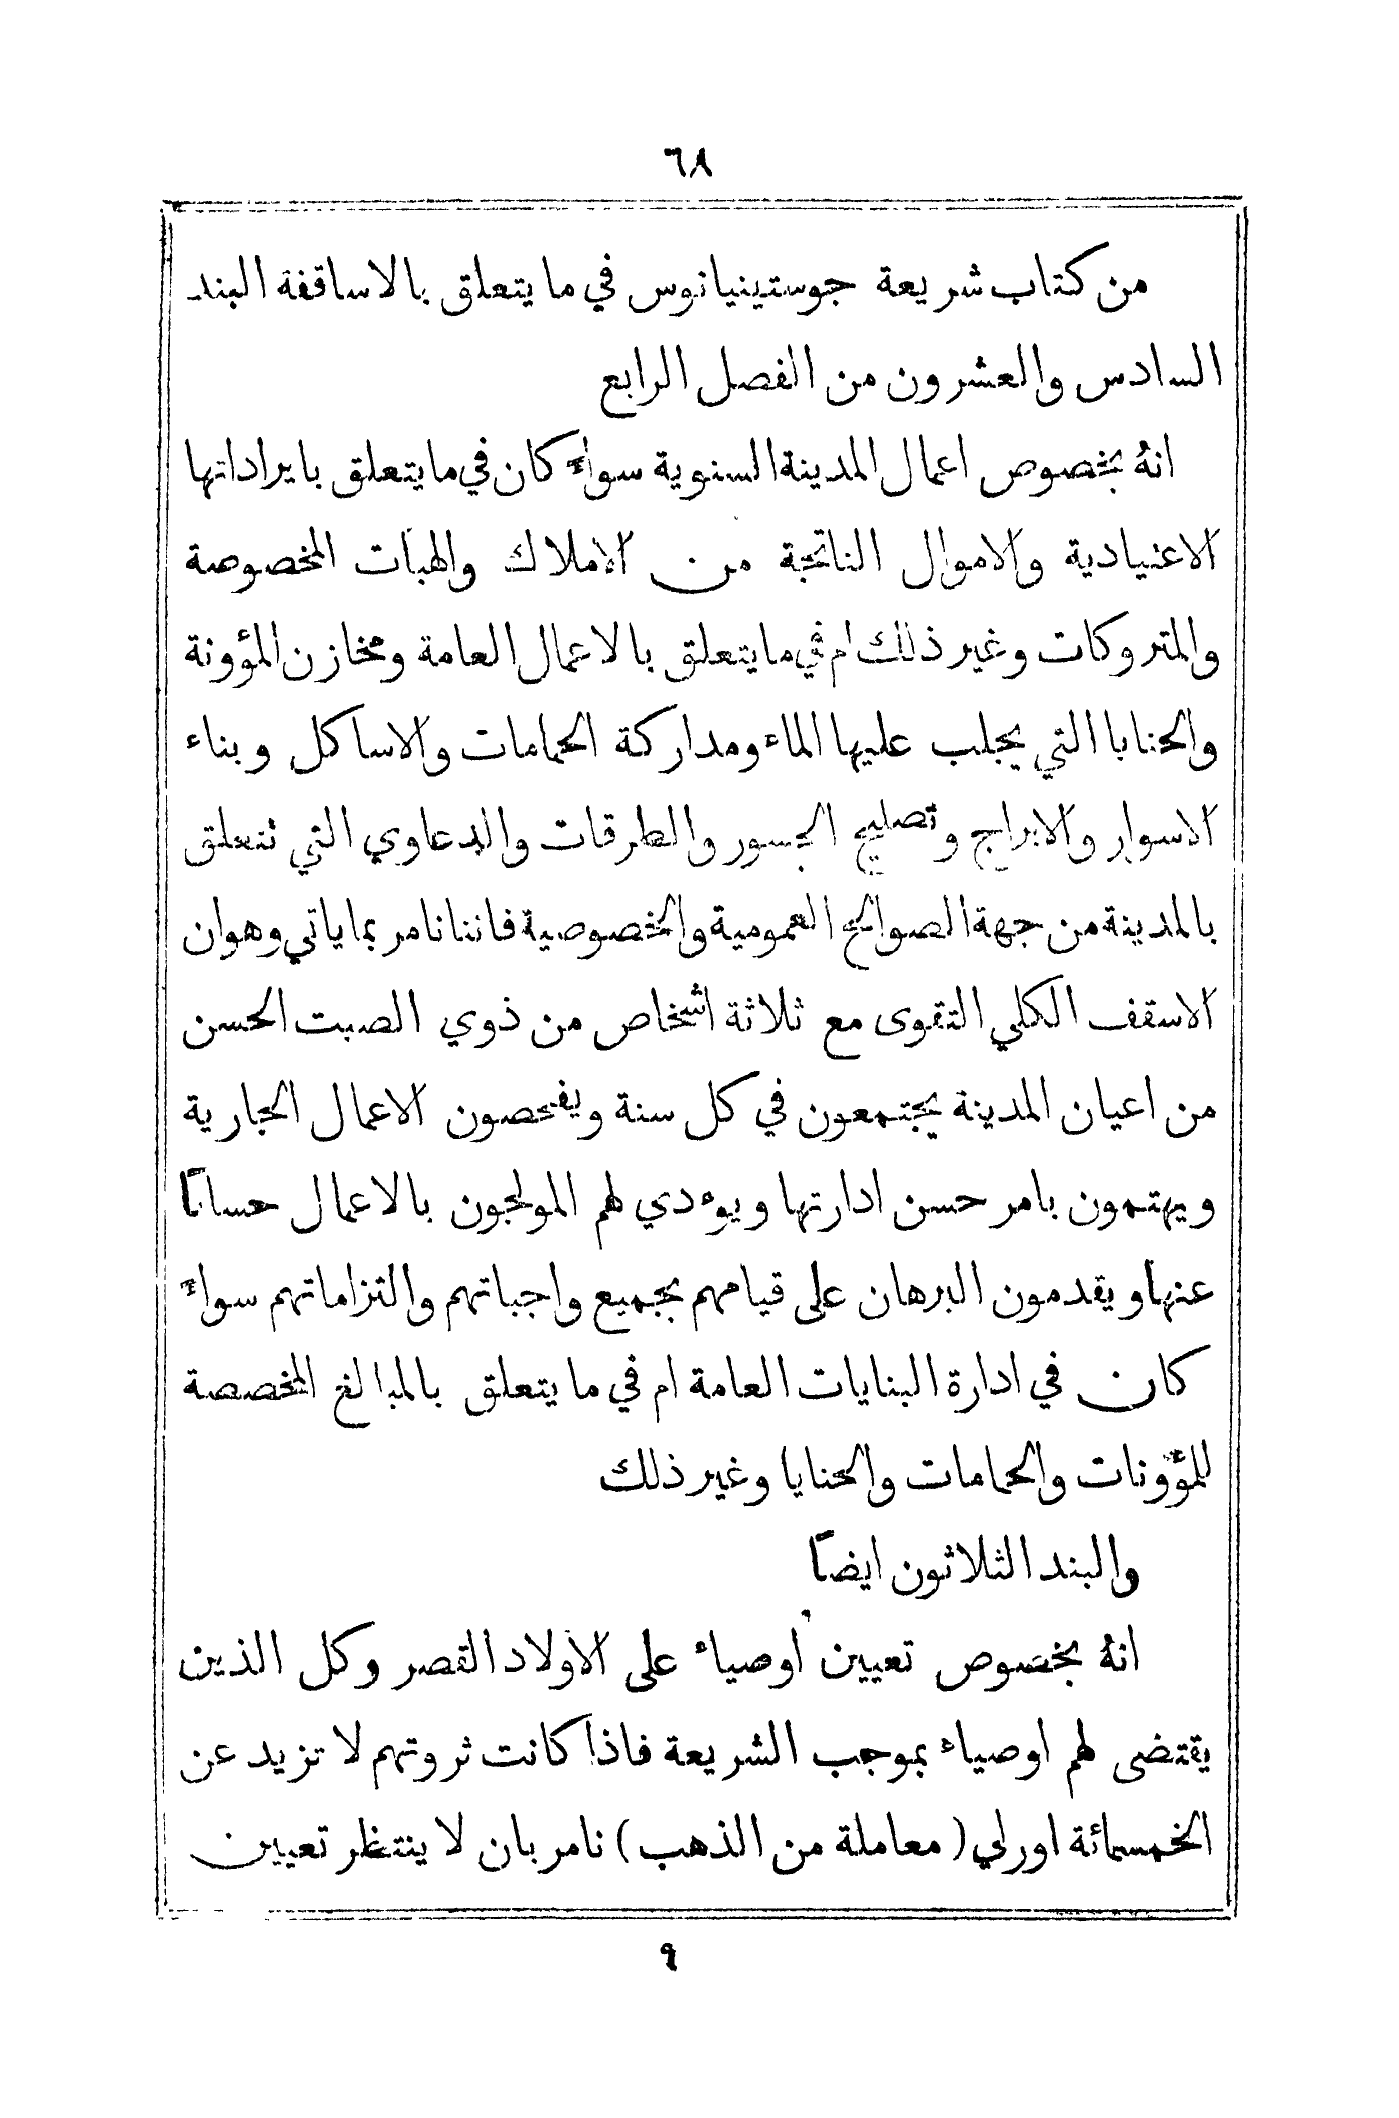 ٦٨
من كتاب شريعة جوستينيانوس في ما يتعلق بالاساقفة البند
السادس والعشرون من الفصل الرابع
انهُ بخصوص اعمال المدينة السنوية سواءٌ كان في ما يتعلق بايراداتها
الاعنيادية والاموال الناتجة من الاملاك والهبات المخصوصة
والمتروكات وغير ذلك ام في ما يتعلق بالاعمال العامة ومخازن المؤونة
والحنابا التي يجلب عليها الماء ومداركة الحمامات والاساكل وبناء
الاسوار والابراج وتصليح الجسور والطرقات والدعاوي التي نتعلق
بالمدينة من جهة الصوالح العمومية والخصوصية فاننا نامر بما ياتي وهو ان
الاسقف الكلي التقوى مع ثلاثة اشخاص من ذوي الصبت الحسن
من اعيان المدينة يجتمعون في كل سنة ويفحصون الاعمال الجارية
ويهتمون بامر حسن ادارتها ويوءدي لهم المولجون بالاعمال حسابًا
عنها ويقدمون البرهان على قيامهم بجميع واجباتهم والتزاماتهم سواءٌ
كان في ادارة البنايات العامة ام في ما يتعلق بالمبالغ المخصصة
للمؤونات والحمامات والحنايا وغير ذلك
والبند الثلاثون ايضًا
انهُ بخصوص تعيين اوصياء على الاولاد القصر وكل الذين
يقتضى لهم اوصياء بموجب الشريعة فاذا كانت ثروتهم لا تزيد عن
الخمسمائة اورلي (معاملة من الذهب) نامر بان لا ينتظر تعيين
٩